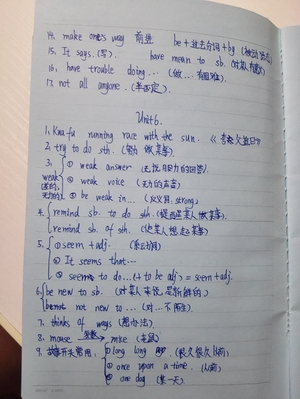 14. make one's way 前进 be+过去分词+by (被动语态)
15. It says. (写). have mean to sb. (对某人
16. have trouble doing... (做...有困难).
17. not all anyone. (半否定).
Unit 6.
1. Kua fu running race with the sun. 《夸父追日》
2. try to do sth. (努力做某事).
3. weak ① weak answer (无说服力的回答).
② weak voice (无力的声音)
③ be weak in... (反义词: strong)
4. remind sb. to do sth. (提醒某人做某事).
remind sb. of sth. (使某人想起某事)
5. ① seem + adj. (系动词)
② It seems that...
③ seems to do... (+to be adj) = seem+adj.
6. be new to sb. (对某人来说是新鲜的)
be not new to... (对...不陌生).
7. thinks of ways (想办法).
8. mouse → mice (老鼠)
9. 故事开头常用: ① long long ago. (很久很久以前)
② once upon a time. (从前)
③ one day (某一天).